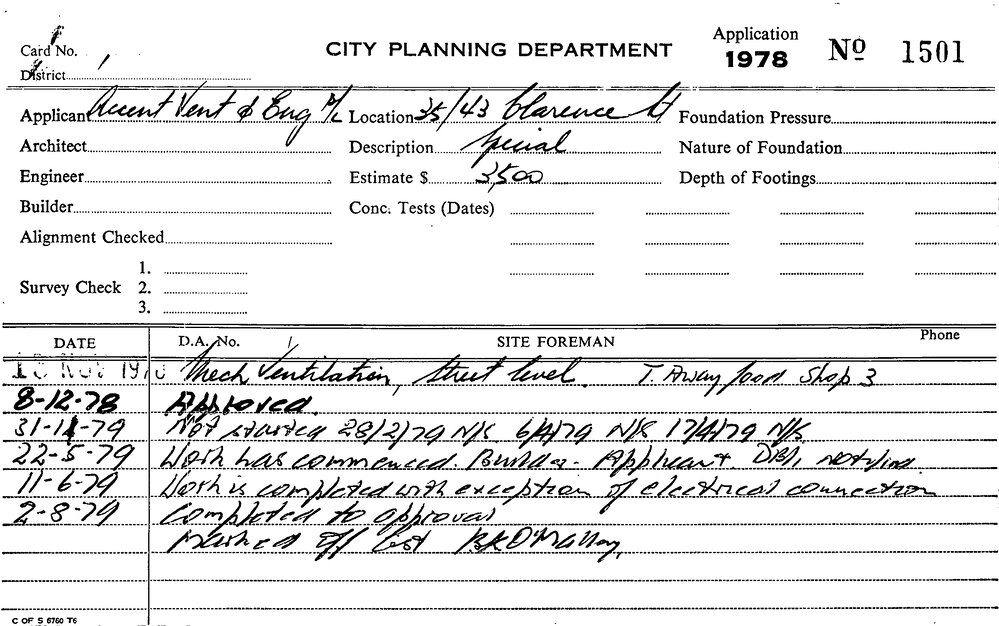 Card No.
CITY PLANNING DEPARTMENT
Application
1978
Nº 1501
District
Applicant Accent Vent & Eng P/L Location 35/43 Clarence St Foundation Pressure
Architect Description Special Nature of Foundation
Engineer Estimate $ 3,500 Depth of Footings
Builder Conc. Tests (Dates)
Alignment Checked
1.
Survey Check 2.
3.
DATE D.A. No. SITE FOREMAN Phone
NOV 1978 Mech Ventilation, Street Level. T. Away food Shop 3
8-12-78 Approved.
31-1-79 Not started 28/2/79 N/S 6/4/79 N/S 17/4/79 N/S
22-5-79 Work has commenced. Builder - Applicant.
11-6-79 Work is completed with exception of electrical connection
2-8-79 Completed to approval
Marked off list B.K. O'Malley.
C OF S 6760 T6